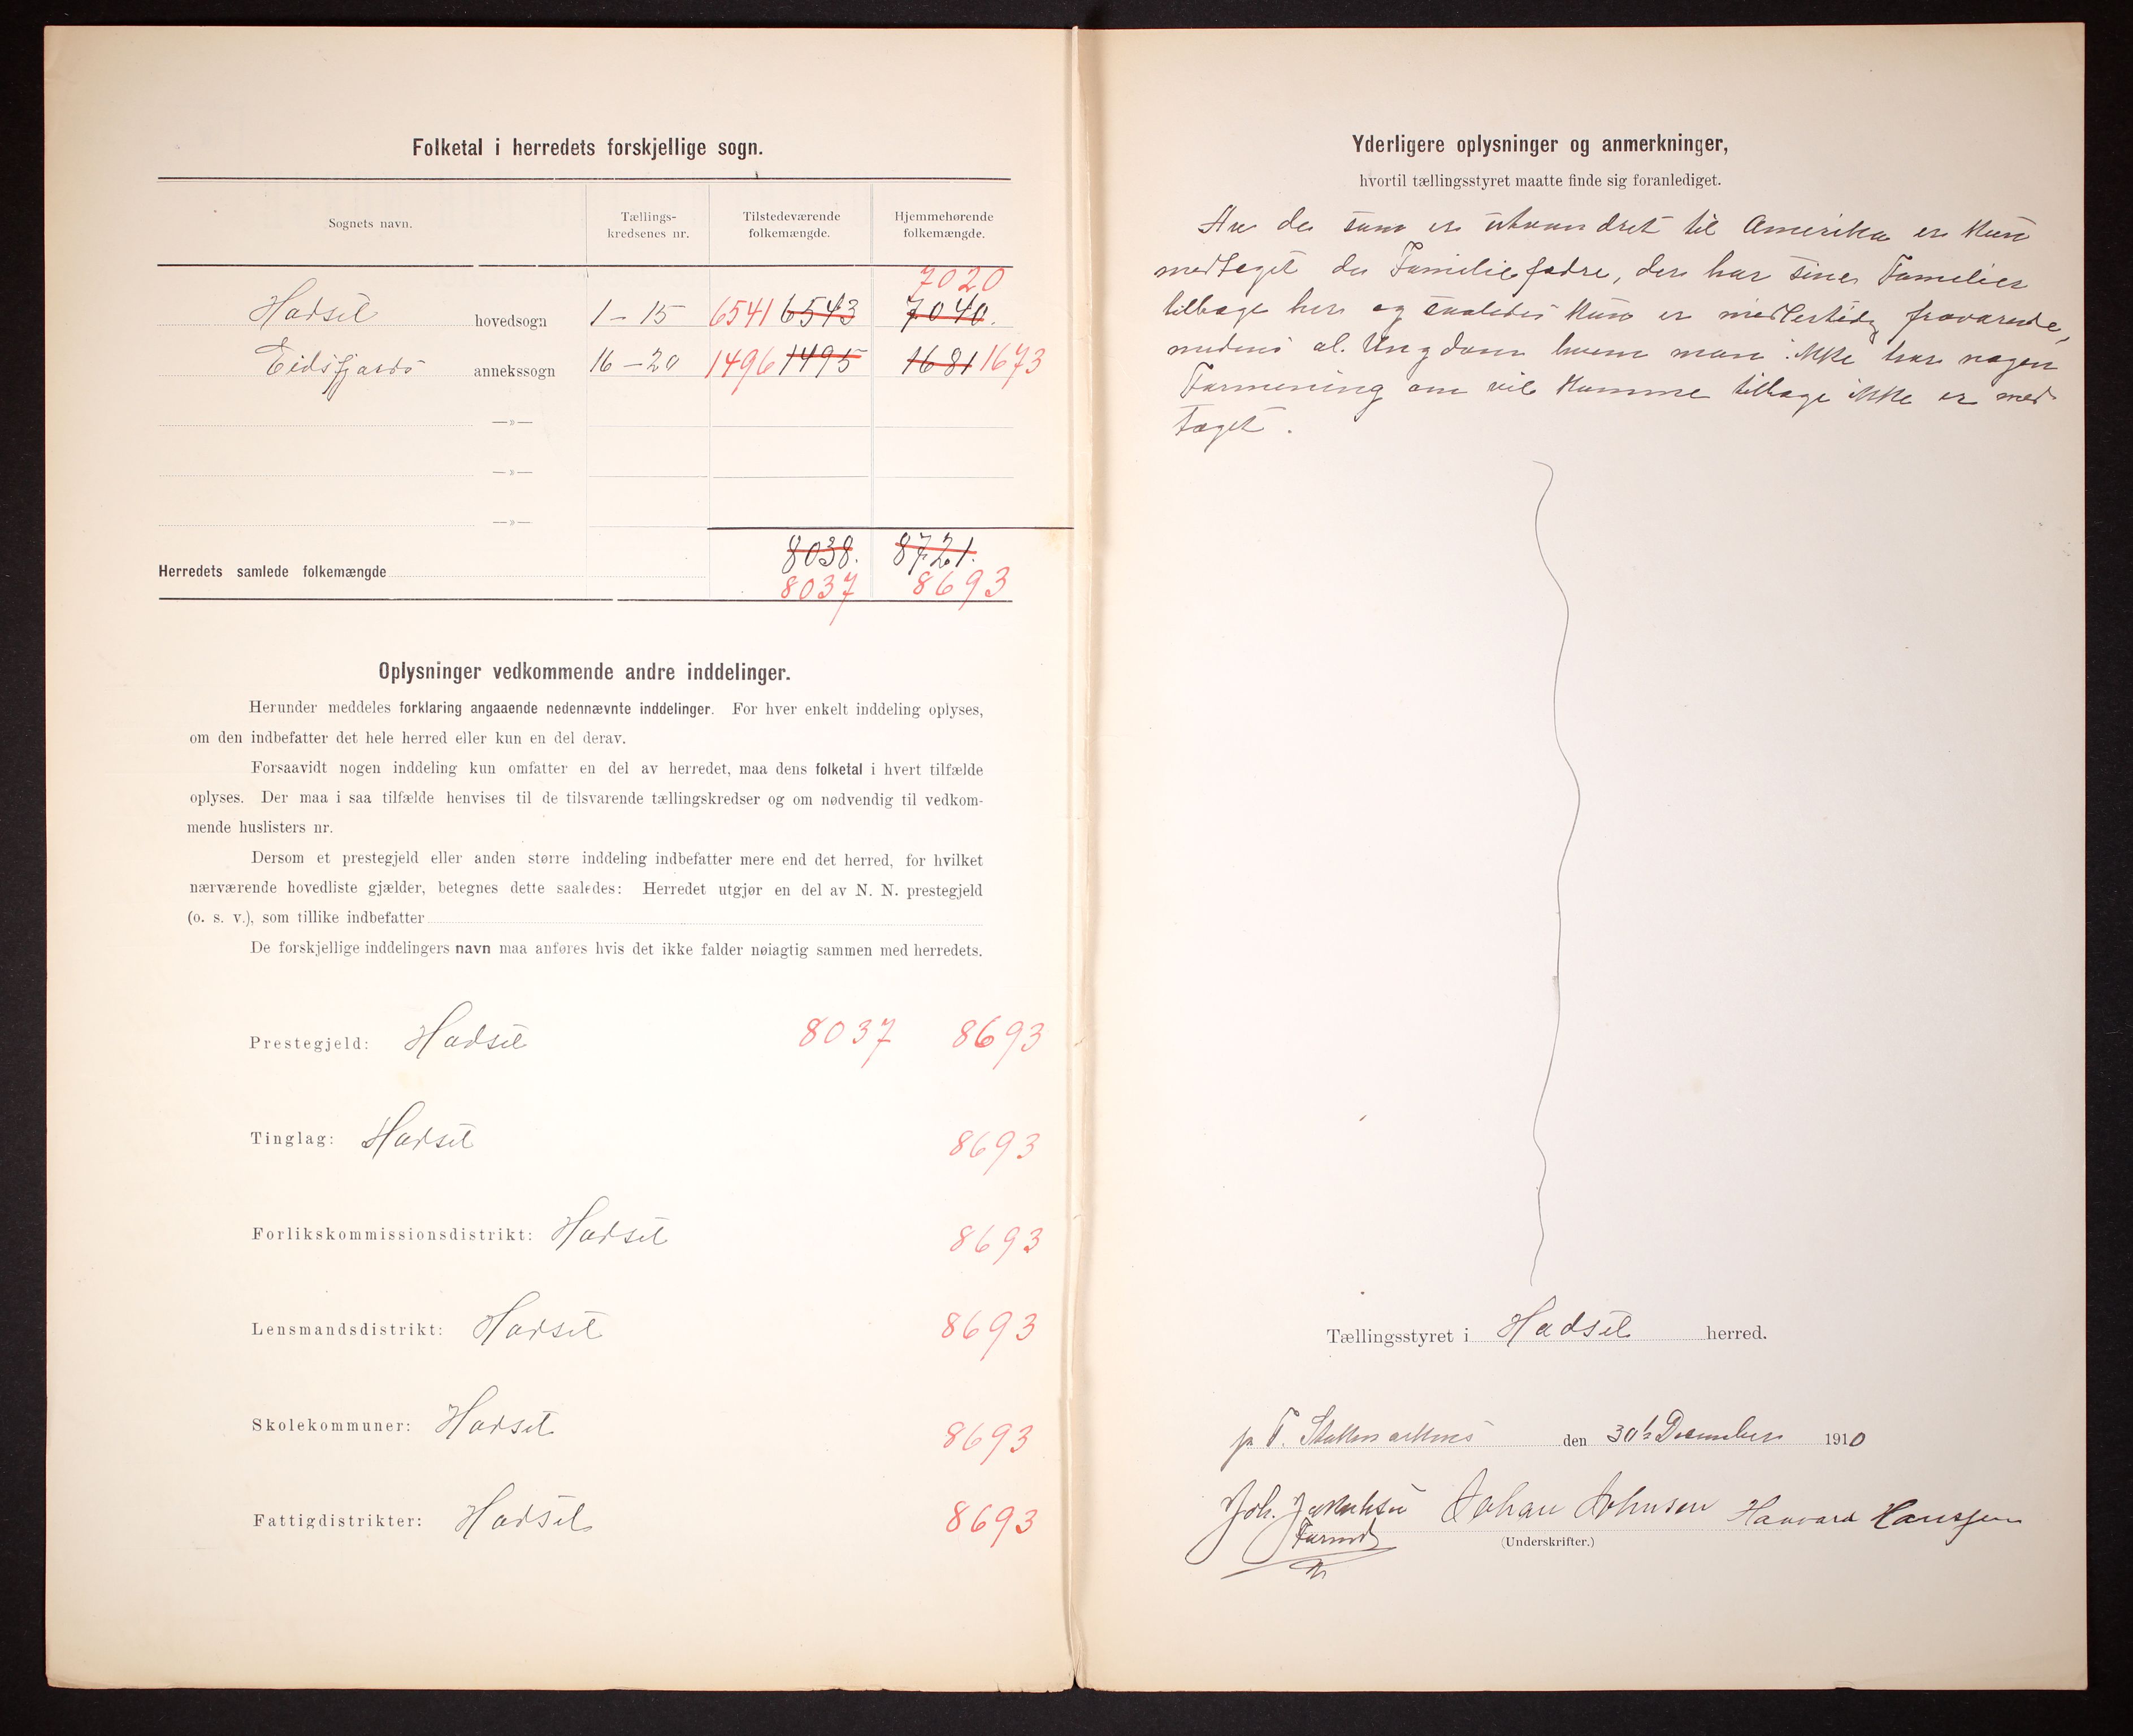 Folketal i herredets forskjellige sogn.
Sognets navn.
Tællings-
kredsenes nr.
Tilstedeværende
folkemængde.
Hjemmehørende
folkemængde.
7020
Hadsel hovedsogn 1-15 6541 6543 7040.
Eidsfjord annekssogn 16-20 1496 1495 1681 1673
—»—
—»—
—»—
8038. 8721.
Herredets samlede folkemængde
8037 8693
Oplysninger vedkommende andre inddelinger.
Herunder meddeles forklaring angaaende nedennævnte inddelinger. For hver enkelt inddeling oplyses,
om den indbefatter det hele herred eller kun en del derav.
Forsaavidt nogen inddeling kun omfatter en del av herredet, maa dens folketal i hvert tilfælde
oplyses. Der maa i saa tilfælde henvises til de tilsvarende tællingskredser og om nødvendig til vedkom-
mende huslisters nr.
Dersom et prestegjeld eller anden større inddeling indbefatter mere end det herred, for hvilket
nærværende hovedliste gjælder, betegnes dette saaledes: Herredet utgjør en del av N. N. prestegjeld
(o. s. v.), som tillike indbefatter
De forskjellige inddelingers navn maa anføres hvis det ikke falder nøiagtig sammen med herredets.
Prestegjeld: Hadsel 8037 8693
Tinglag: Hadsel 8693
Forlikskommissionsdistrikt: Hadsel 8693
Lensmandsdistrikt: Hadsel 8693
Skolekommuner: Hadsel 8693
Fattigdistrikter: Hadsel 8693
Yderligere oplysninger og anmerkninger,
hvortil tællingsstyret maatte finde sig foranlediget.
Av de som er utvandret til Amerika er kun
medtaget de Familiefædre, der har sine Familier
tilbage her og saaledes kun er midlertidig fraværende,
medens al Ungdom hvem man ikke har nogen
Formening om vil komme tilbage ikke er med
taget.
Tællingsstyret i Hadsel herred.
p. T. Stokmarknes den 30te December 1910
Joh. Johan Johnsen Haavard Hanssen
Formd
(Underskrifter.)